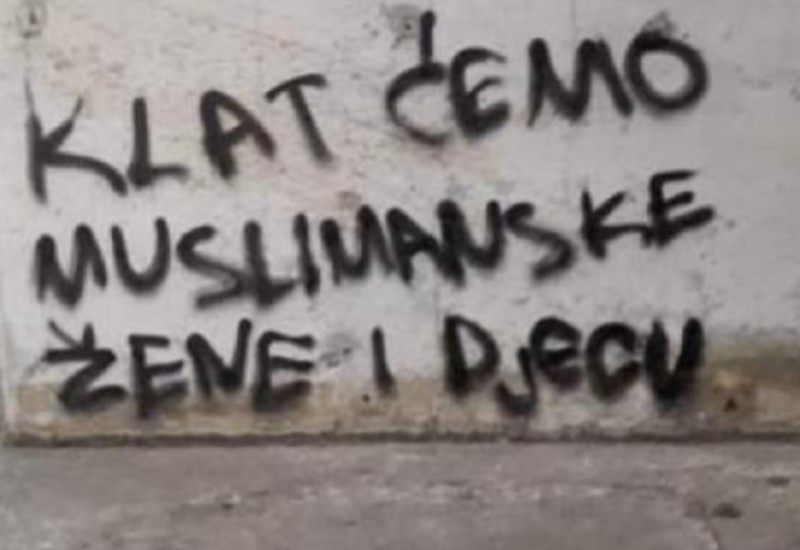 KLAT ĆEMO
MUSLIMANSKE
ŽENE I DJeCU